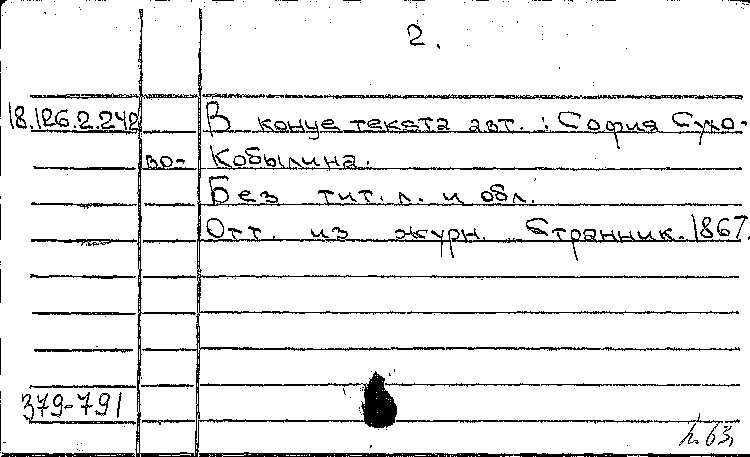 2.
18.126.2.242 В конце текста авт. : София Сухо-
во- Кобылина.
Без тит. л. и обл.
Отт. из журн. Странник. 1867.
379-791